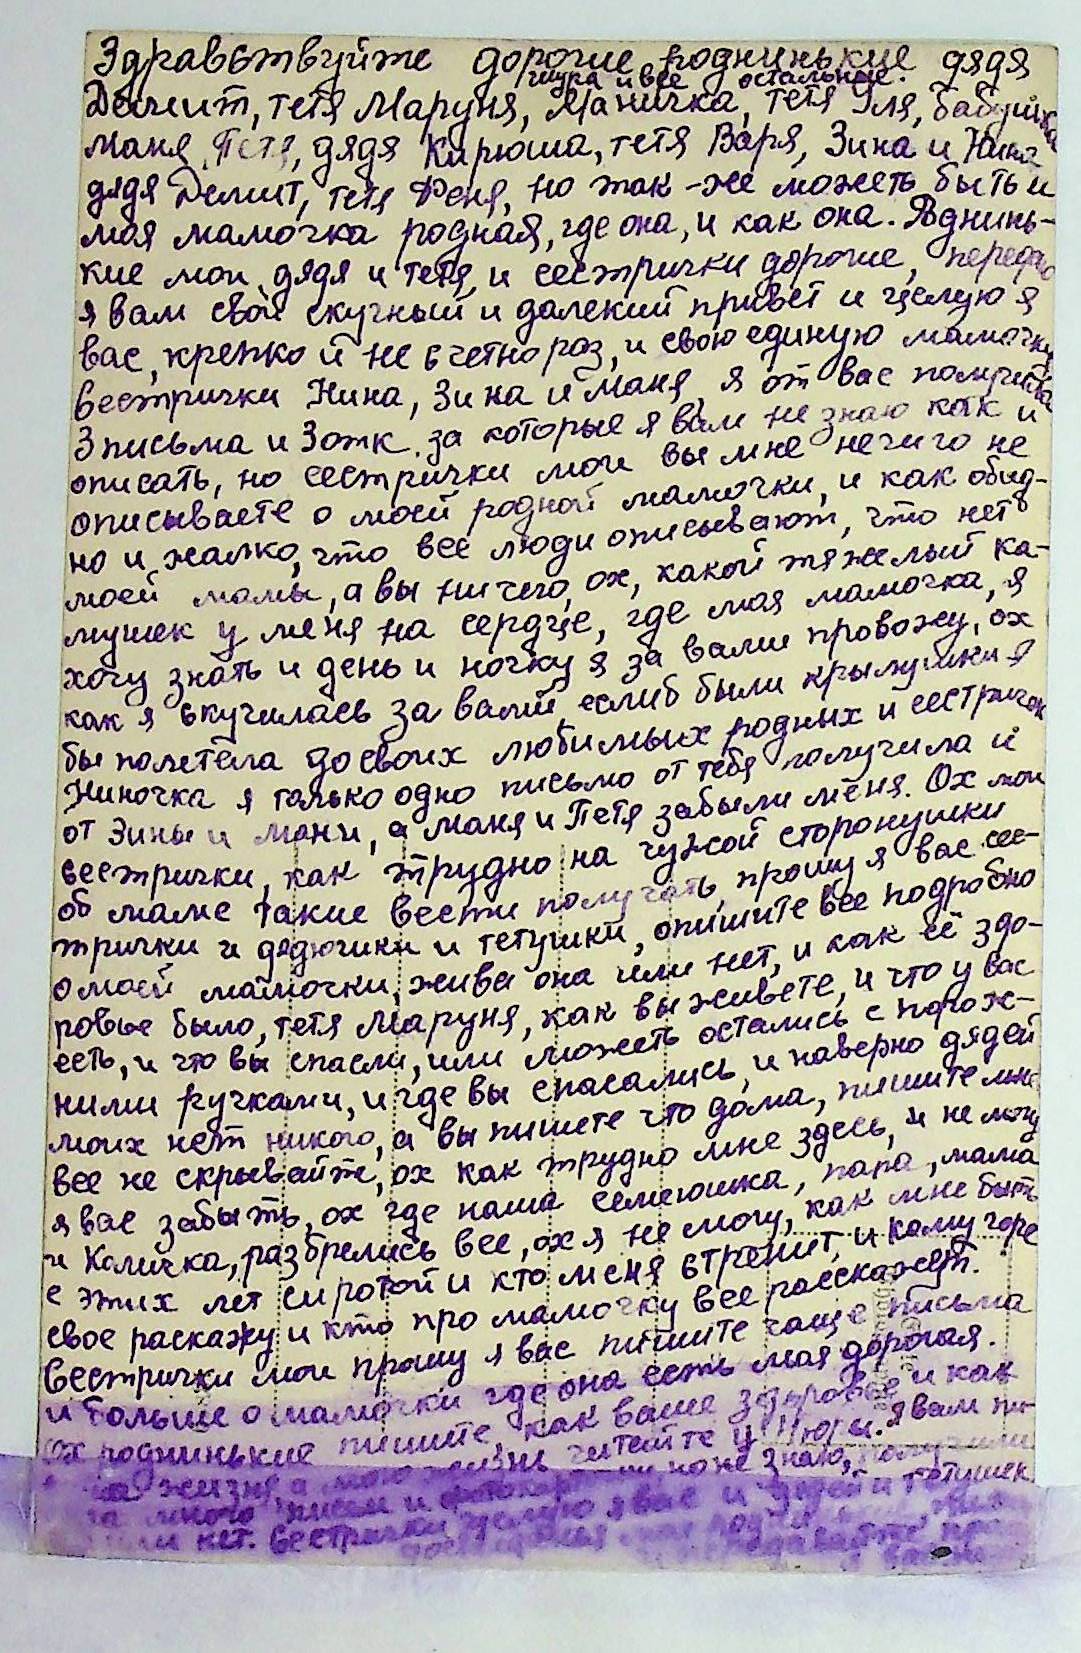 Здравствуйте дорогие роднинькие дядя
шура и все остальные.
Демит, тетя Маруня, Маничка, тетя Уля, бабушка
Маня, Петя, дядя Кирюша, тетя Варя, Зина и Нина
дядя Демит, тетя Феня, но так-же можеть быть и
моя мамочка родная, где она, и как она. Рднинь-
кие мои, дядя и тетя, и сестрички дорогие, передаю
я вам свой скучный и далекий привет и целую я
вас, крепко и не счетно раз, и свою единую мамочку
Сестрички Нина, Зина и Маня, я от вас получила
3 письма и 3 отк. за которые я вам не знаю как и
описать, но сестрички мои вы мне нечиго не
описываете о моей родной мамочки, и как обид-
но и жалко, что все люди описывают, что нет
моей мамы, а вы ничего, ох, какой тяжелый ка-
мушек у меня на сердце, где моя мамочка, я
хочу знать и день и ночку я за вами провожу, ох
как я скучилась за вами, еслиб были крылушки я
бы полетела до своих любимых родных и сестричек
Ниночка я только одно письмо от тебя получила и
от Зины и Мани, а Маня и Петя забыли меня. Ох мои
сестрички, как трудно на чужой сторонушки
об маме такие вести получать, прошу я вас сес-
трички и дядючики и тетушки, опишите все подробно
о моей мамочки, жива она или нет, и как её здо-
ровье было, тетя Маруня, как вы живете, и что у вас
есть, и что вы спасли, или можеть остались с порож-
ними ручками, и где вы спасались, и наверно дядей
моих нет никого, а вы пишете что дома, пишите мне
все не скрывайте, ох как трудно мне здесь, и не могу
я вас забыть, ох где наша семеюшка, папа, мама
и Количка, разбрелись все, ох я не могу, как мне быть
с этих лет сиротой и кто меня стренит, и кому горе
свое раскажу и кто про мамочку все расскажет.
Сестрички мои прошу я вас пишите чаще письма
и больше о мамочки где она есть моя дорогая.
Ох роднинькие пишите как ваше здоровье и как
жизня а мою жизнь читайте у Нюры. Я вам пи-
много писем и не знаю, получили
или нет. Сестрички целую я вас и дядей и тетушек